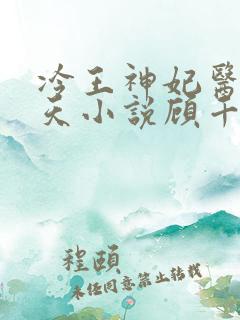 冷王神妃醫
天小說顾十
程頤
未任同意禁止转载